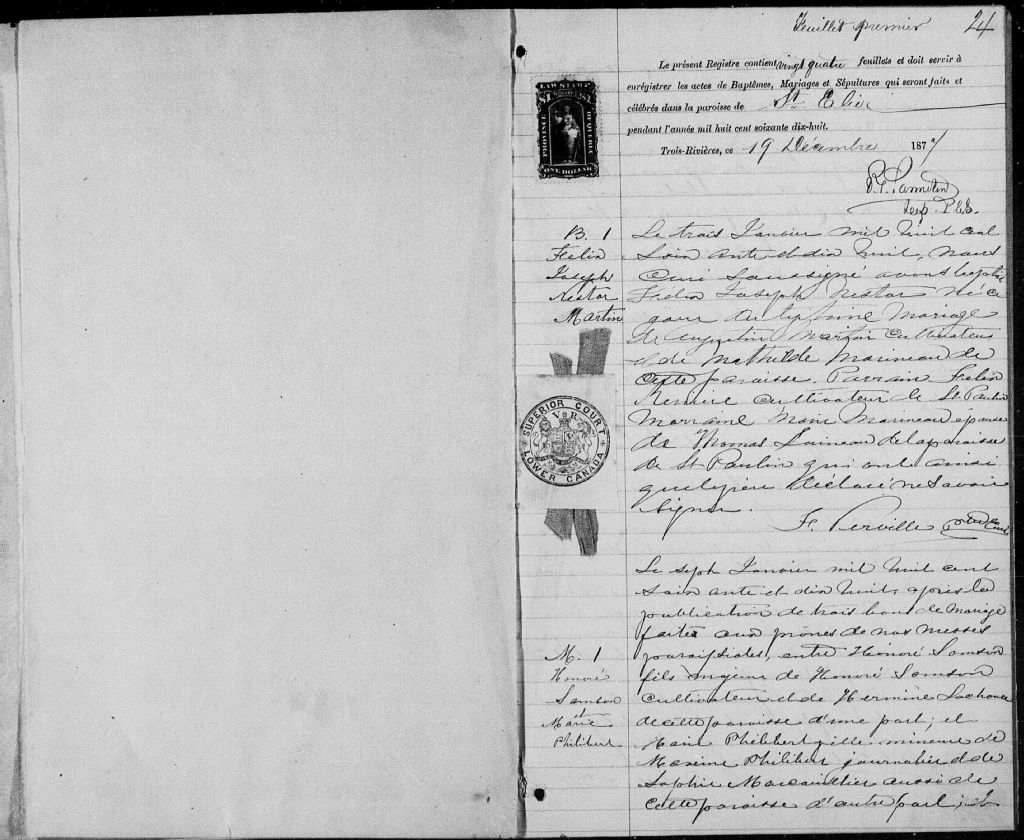 Feuillet premier 24
Le présent Registre contient vingt quatre feuillets et doit servir à
enrégistrer les actes de Baptêmes, Mariages et Sépultures qui seront faits et
célébrés dans la paroisse de St Elie
pendant l'année mil huit cent soixante dix-huit.
Trois-Rivières, ce 19 Décembre 1877
LAW STAMP
$1 $1
PROVINCE OF QUEBEC
ONE DOLLAR
Dep. P.C.S.
B. 1
Felix
Joseph
Nestor
Martin
Le trois Janvier mil huit cent
soix ante et dix huit, nous
Curé soussigné avons baptisé
Félix Joseph Nestor né ce
jour du légitime mariage
de Augustin Martin cultivateur
et de Mathilde Marineau de
cette paroisse. Parrain Felix
cultivateur de St Paulin
Marraine Marie Marineau épouse
de Thomas de la paroisse
de St Paulin qui ont ainsi
que le père déclaré ne savoir
signer.
F. Verville ptre Curé
SUPERIOR COURT
V R
LOWER CANADA
M. 1
Honoré
Samson
et
Marie
Philibert
Le sept Janvier mil huit cent
soix ante et dix huit, après la
publication de trois bans de mariage
faites aux prônes de nos messes
paroissiales, entre Honoré Samson
fils majeur de Honoré Samson
cultivateur et de Hermine Lachance
de cette paroisse d'une part; et
Marie Philibert fille mineure de
Maxime Philibert journalier et de
Sophie aussi de
cette paroisse d'autre part; et